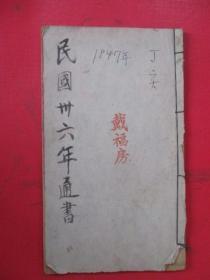 丁亥
1847年
戴福房
民國卅六年通書